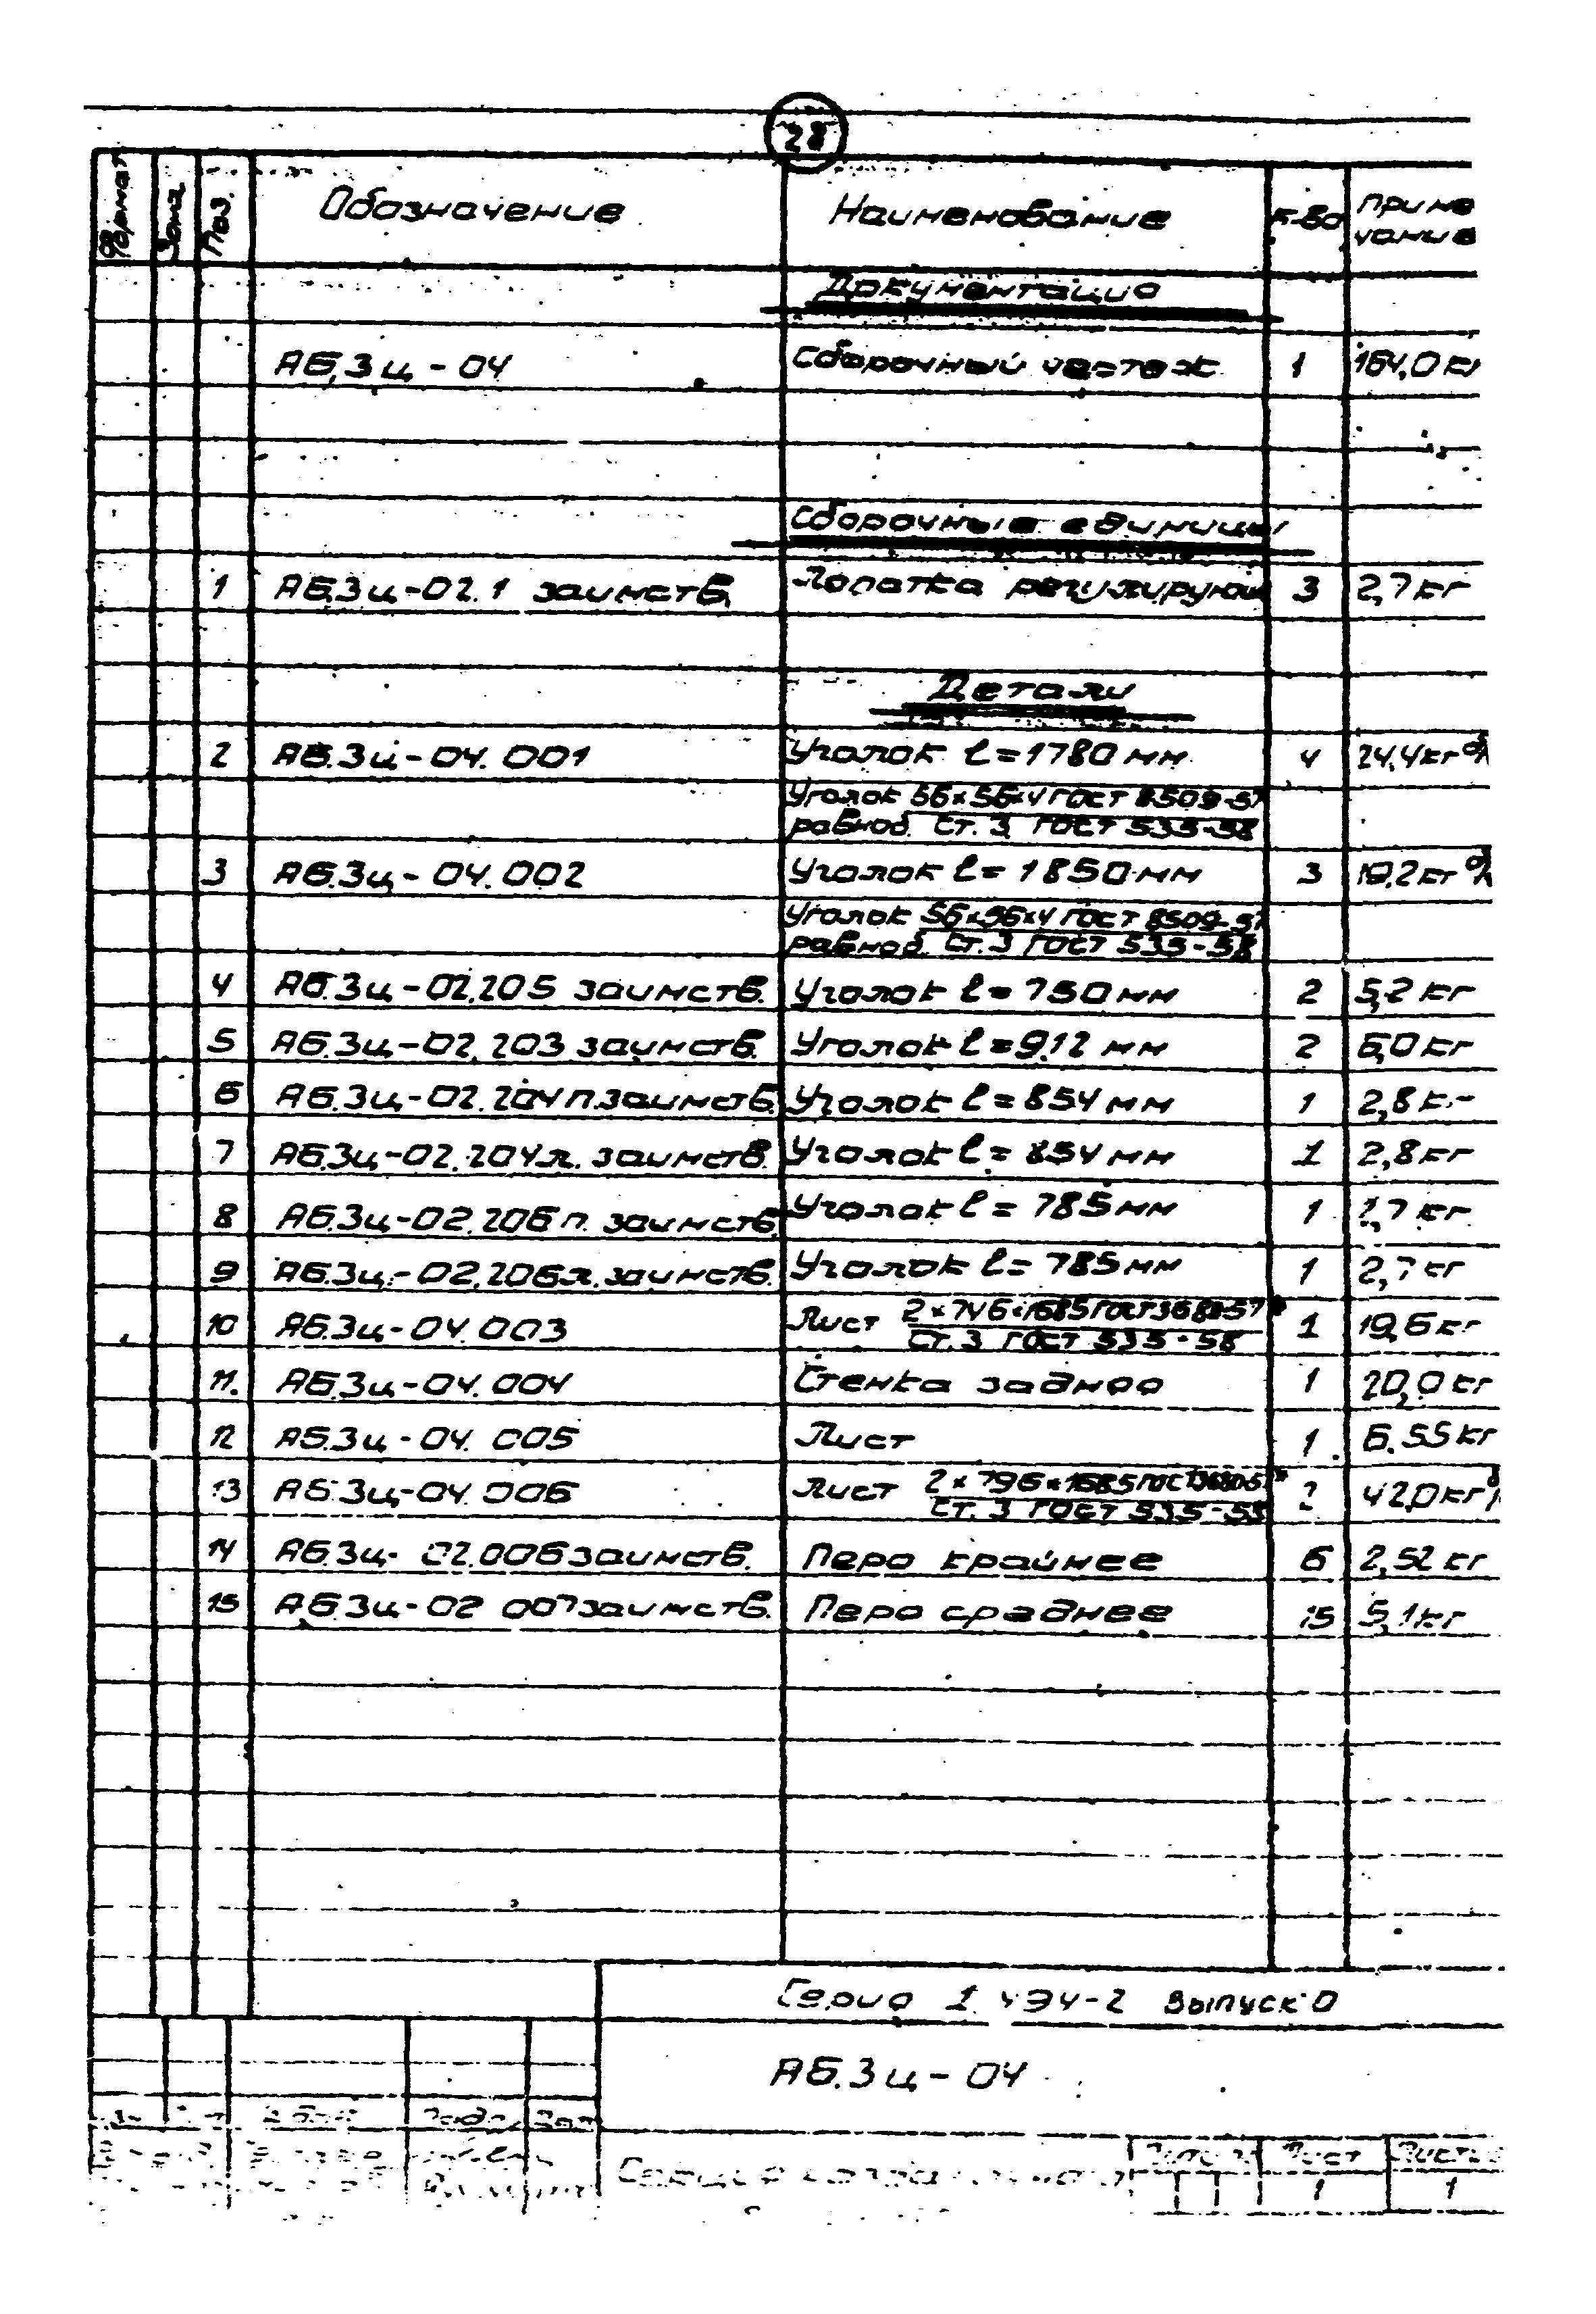 28
Формат Зона Поз. Обозначение Наименование К-во Приме чание
Документация
АБ.3ц-04 Сборочный чертеж 1 164,0 кг
Сборочные единицы
1 АБ.3ц-02.1 заимств. Лопатка регулирующ 3 2,7 кг
Детали
2 АБ.3ц-04.001 Уголок ℓ=1780 мм 4 24,4 кг
Уголок 56×56×4 ГОСТ 8509-57
равноб. Ст. 3 ГОСТ 535-58
3 АБ.3ц-04.002 Уголок ℓ=1850 мм 3 19,2 кг
Уголок 56×56×4 ГОСТ 8509-57
равноб. Ст. 3 ГОСТ 535-58
4 АБ.3ц-02.205 заимств. Уголок ℓ=750 мм 2 5,2 кг
5 АБ.3ц-02.203 заимств. Уголок ℓ=912 мм 2 6,0 кг
6 АБ.3ц-02.204п.заимств. Уголок ℓ=854 мм 1 2,8 кг
7 АБ.3ц-02.204л. заимств. Уголок ℓ=854 мм 1 2,8 кг
8 АБ.3ц-02.206п. заимств. Уголок ℓ=785 мм 1 2,7 кг
9 АБ.3ц-02.206л.заимств. Уголок ℓ=785 мм 1 2,7 кг
10 АБ.3ц-04.003 Лист 2×746×1685 ГОСТ 3680-57 1 19,6 кг
Ст. 3 ГОСТ 535-58
11. АБ.3ц-04.004 Стенка задняя 1 20,0 кг
12 АБ.3ц-04.005 Лист 1 6.55 кг
13 АБ.3ц-04.006 Лист 2×796×1685 ГОСТ 3680-57 2 42,0 кг
Ст. 3 ГОСТ 535-58
14 АБ.3ц-02.006 заимств. Перо крайнее 6 2,52 кг
15 АБ.3ц-02 007 заимств. Перо среднее 15 5,1 кг
Серия 1.494-2 выпуск 0
АБ.3ц-04
Лист
1 1